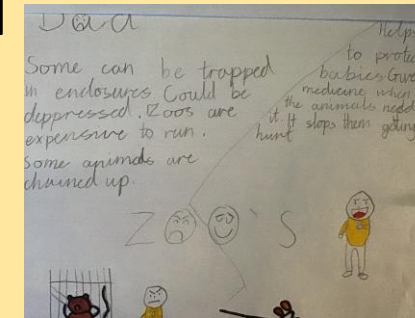 Bad
Some can be trapped
in enclosures Could be
deppressed. Zoos are
expensive to run.
Some animals are
chained up.
Helps
to protec
babies Give
medicine when
the animals need
it. It stops them getting
hunt
ZOO'S